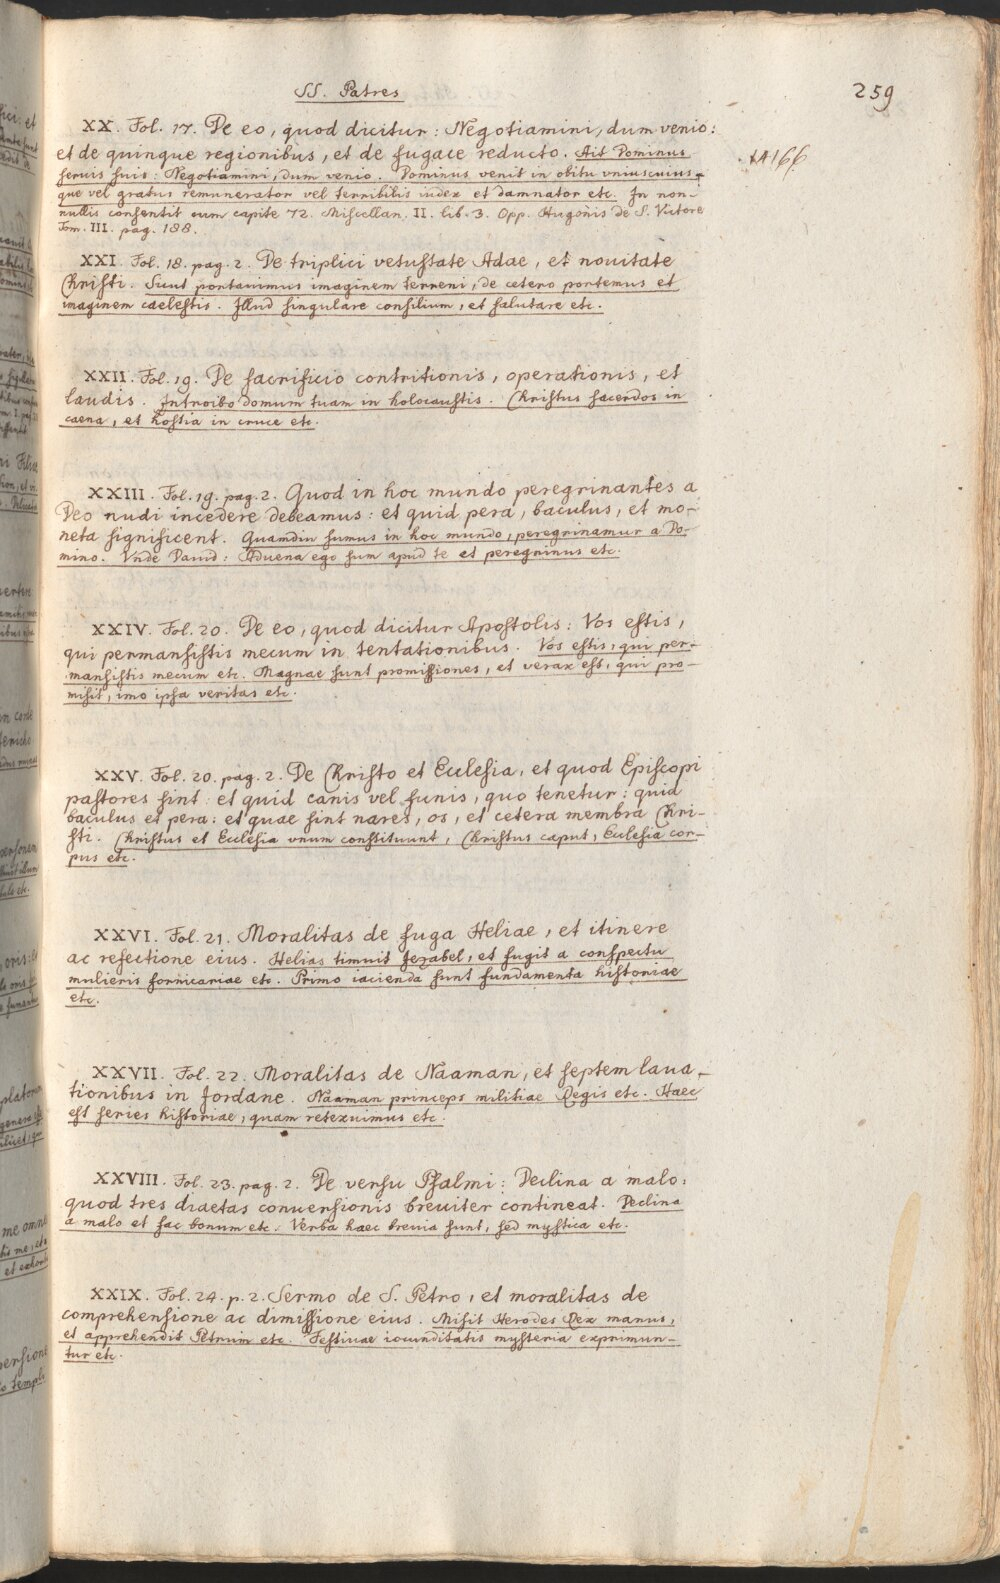 SS. Patres
259
XX. Fol. 17. De eo, quod dicitur: Negotiamini, dum venio:
et de quinque regionibus, et de fugace reducto. Ait Dominus
servis suis: Negotiamini, dum venio. Dominus venit in obitu vniuscuius-
que vel gratus remunerator vel terribilis iudex et damnator etc. In non-
nullis consentit cum capite 72. Miscellan. II. lib. 3. Opp. Hugonis de S. Victore
Tom. III. pag. 188.
XXI. Fol. 18. pag. 2. De triplici vetustate Adae, et novitate
Christi. Sicut portavimus imaginem terreni, de cetero portemus et
imaginem caelestis. Illud singulare consilium, et salutare etc.
XXII. Fol. 19. De sacrificio contritionis, operationis, et
laudis. Introibo domum tuam in holocaustis. Christus sacerdos in
caena, et hostia in cruce etc.
XXIII. Fol. 19. pag. 2. Quod in hoc mundo peregrinantes a
Deo nudi incedere debeamus: et quid pera, baculus, et mo-
neta significent. Quamdiu sumus in hoc mundo, peregrinamur a Do-
mino. Vnde David: Aduena ego sum apud te et peregrinus etc.
XXIV. Fol. 20. De eo, quod dicitur Apostolis: Vos estis,
qui permansistis mecum in tentationibus. Vos estis, qui per-
mansistis mecum etc. Magnae sunt promissiones, et verax est, qui pro-
misit, imo ipsa veritas etc.
XXV. Fol. 20. pag. 2. De Christo et Ecclesia, et quod Episcopi
pastores sint: et quid canis vel funis, quo tenetur: quid
baculus et pera: et quae sint nares, os, et cetera membra Chri-
sti. Christus et Ecclesia vnum constituunt, Christus caput, Ecclesia cor-
pus etc.
XXVI. Fol. 21. Moralitas de fuga Heliae, et itinere
ac refectione eius. Helias timuit Jezabel, et fugit a conspectu
mulieris fornicariae etc. Primo iacienda sunt fundamenta historiae
etc.
XXVII. Fol. 22. Moralitas de Naaman, et septem lava-
tionibus in Jordane. Naaman princeps militiae Regis etc. Haec
est series historiae, quam retexuimus etc.
XXVIII. Fol. 23. pag. 2. De versu Psalmi: Declina a malo:
quod tres diaetas conuersionis breuiter contineat. Declina
a malo et fac bonum etc. Verba haec brevia sunt, sed mystica etc.
XXIX. Fol. 24. p. 2. Sermo de S. Petro, et moralitas de
comprehensione ac dimissione eius. Misit Herodes Rex manus,
et apprehendit Petrum etc. Festiuae iocunditatis mysteria exprimun-
tur etc.